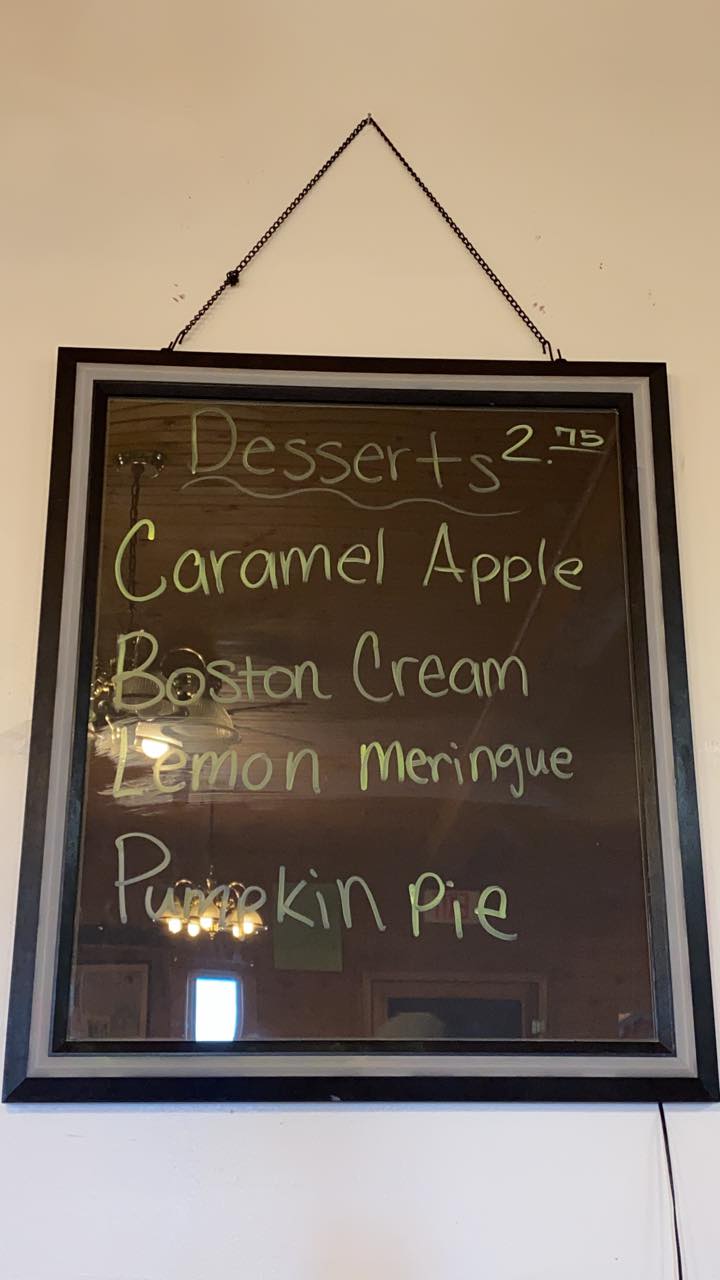 Desserts 2.75
Caramel Apple
Boston Cream
Lemon Meringue
Pumpkin Pie